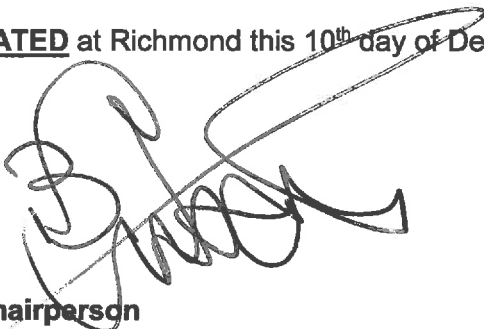 ATED at Richmond this 10th day of De
hairperson